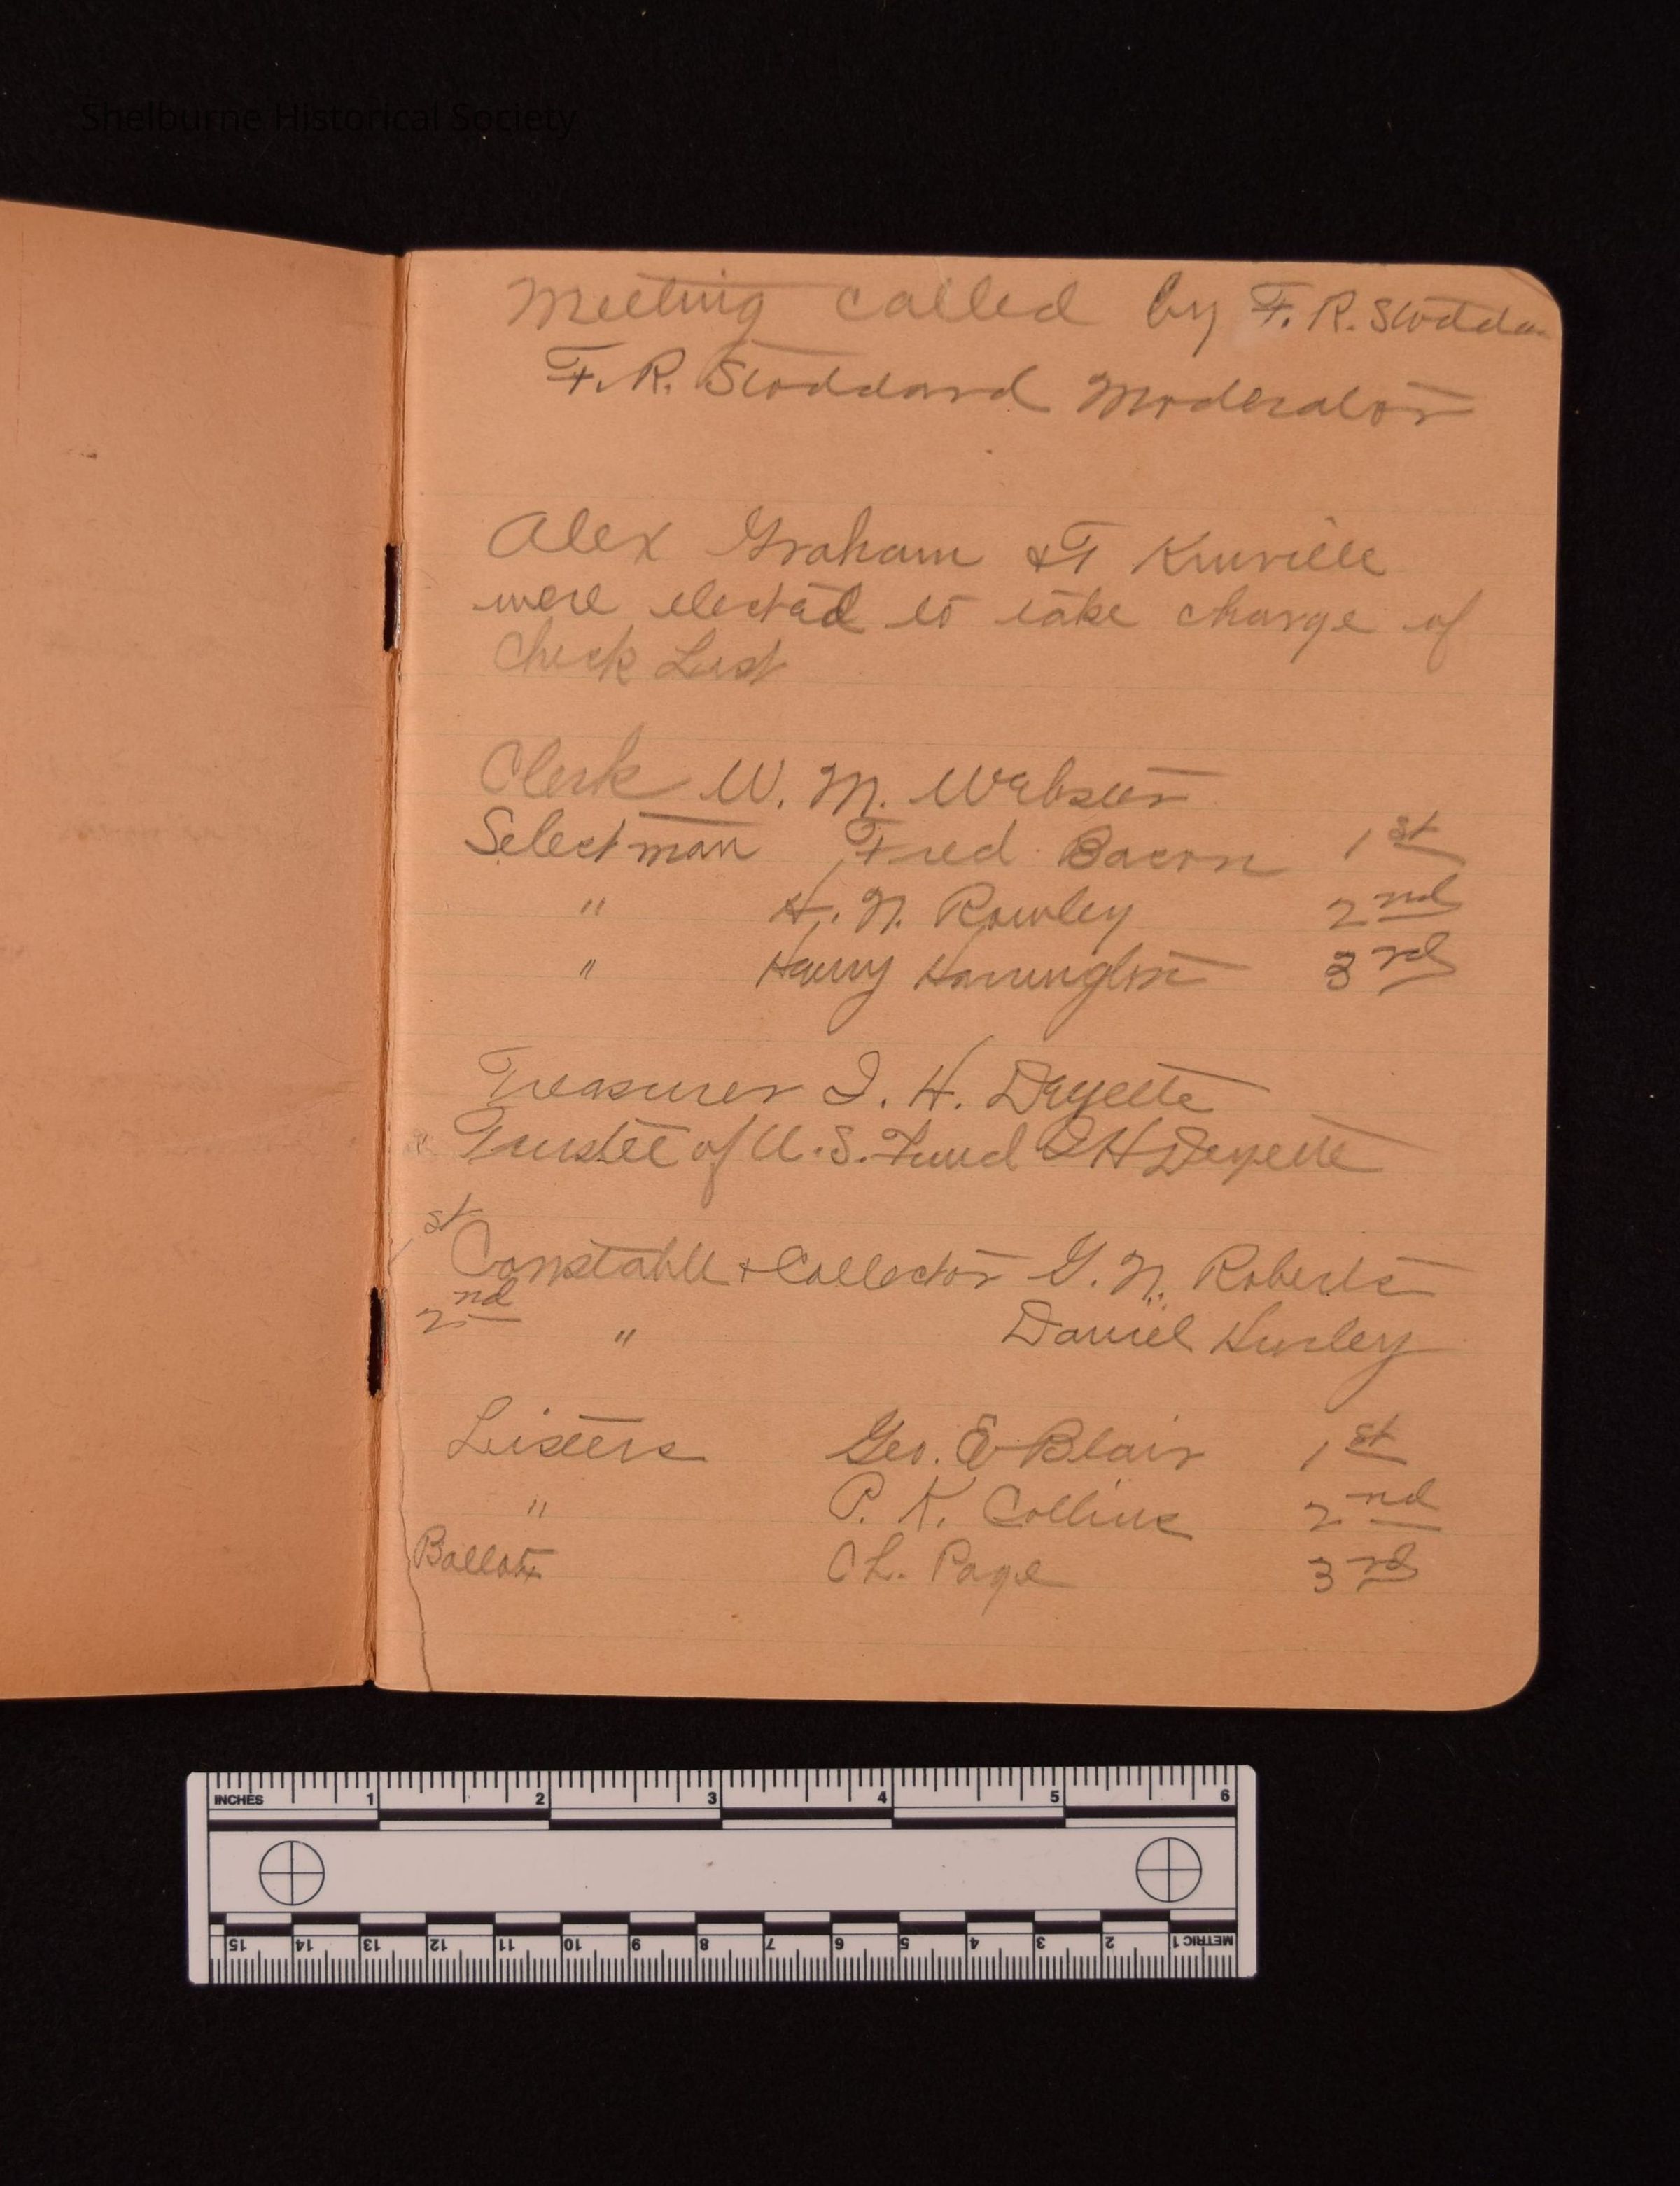 Shelburne Historical Society
Meeting called by F. R. Stodda
F. R. Stoddard Moderator
Alex Graham & T
were elected to take charge of
Check List
Clerk W. M. Webster
Selectman Fred Bacon 1st
" H. N. Rowley 2nd
" Harry Harrington 3rd
Treasurer I. H. Deyette
Trustee of U. S. Fund I H Deyette
1st Constable & Collector G. N. Roberts
2nd " Daniel Hurley
Listers Geo. E Blair 1st
" P. K. Collins 2nd
Ballot Ch. Page 3rd
INCHES 1 2 3 4 5 6
15 14 13 12 11 10 9 8 7 6 5 4 3 2 METRIC 1